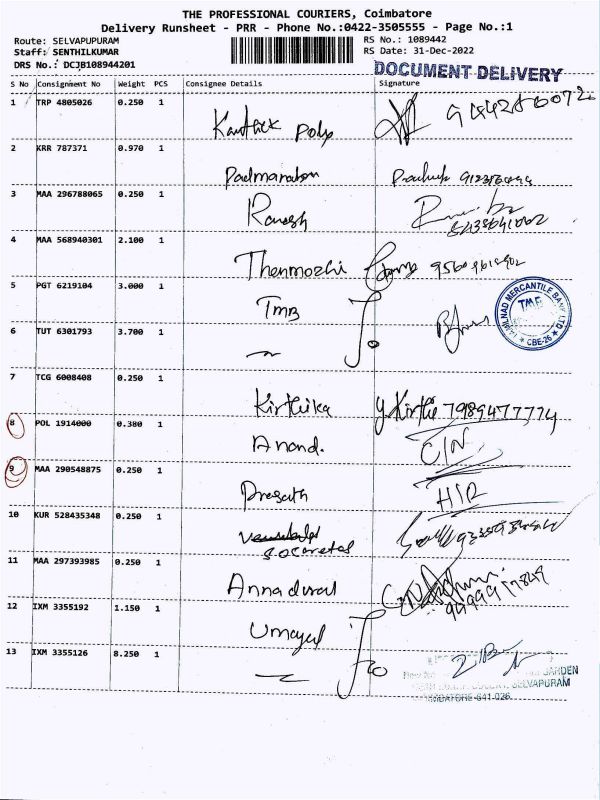 THE PROFESSIONAL COURIERS, Coimbatore
Delivery Runsheet - PRR - Phone No.:0422-3505555 - Page No.:1
Route: SELVAPUPURAM RS No.: 1089442
Staff: SENTHILKUMAR RS Date: 31-Dec-2022
DRS No.: DCJB108944201 DOCUMENT DELIVERY
S No Consignment No Weight PCS Consignee Details Signature
1 TRP 4805026 0.250 1
Karthick Polyp
2 KRR 787371 0.970 1
Padmanaban
3 MAA 296788065 0.250 1
Ramesh
4 MAA 568940301 2.100 1
Thenmozhi
5 PGT 6219104 3.000 1
TMB
TAMILNAD MERCANTILE BANK LTD
TMB
CBE-26
6 TUT 6301793 3.700 1
7 TCG 6008408 0.250 1
Kirthika y. Kirthi 7989477774
8 POL 1914000 0.380 1
Anand. C/N
9 MAA 290548875 0.250 1
Prasath
10 KUR 528435348 0.250 1
socaretas
11 MAA 297393985 0.250 1
Annadurai
12 IXM 3355192 1.150 1
Umayal
13 IXM 3355126 8.250 1
GARDEN
SELVAPURAM
COIMBATORE-641 026.